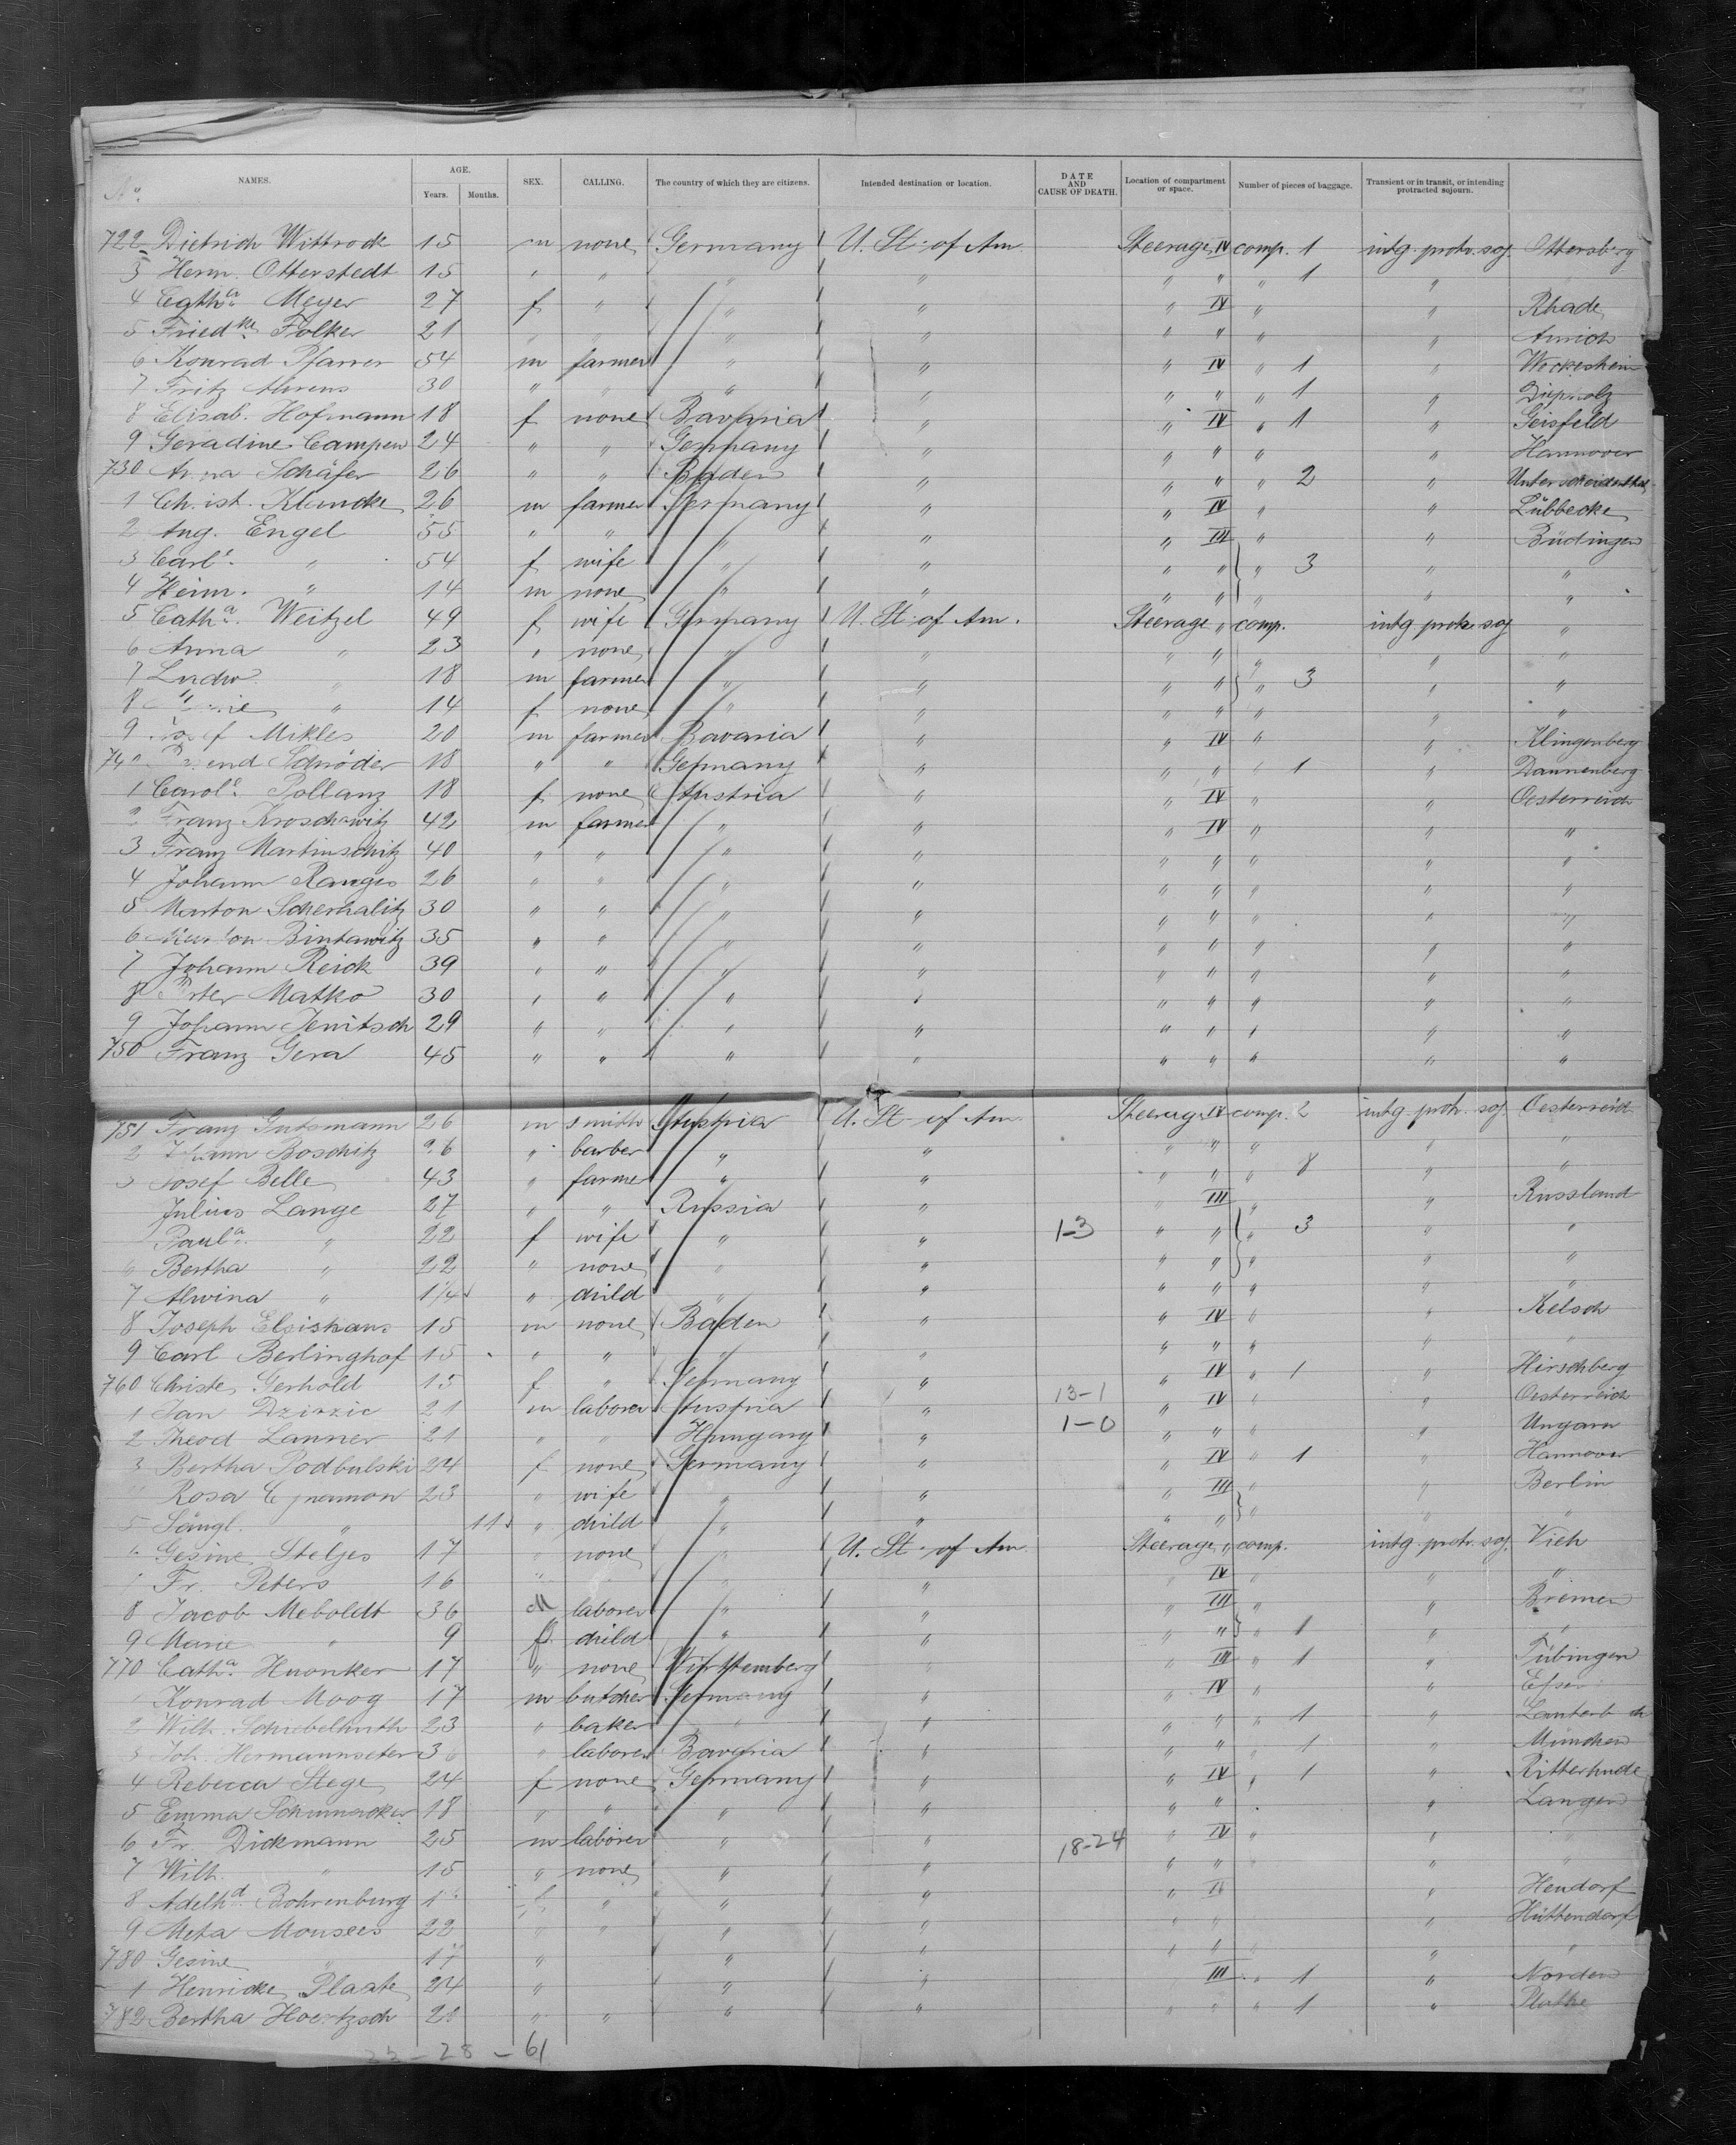 No. NAMES. AGE. Years. Months. SEX. CALLING. The country of which they are citizens. Intended destination or location. DATE AND CAUSE OF DEATH. Location of compartment or space. Number of pieces of baggage. Transient or in transit, or intending protracted sojourn.
722 Dietrich Wittrock 15 m none Germany U. St. of Am. Steerage IV comp. 1 intg. protr. soj. Ottersberg
3 Herm. Otterstedt 15 " " " " " " " 1 "
4 Catha. Meyer 27 f " " " " IV " " Rhade
5 Friedke. Folker 21 " " " " " " " " Aurich
6 Konrad Pfarrer 54 m farmer " " " IV " 1 " Weckesheim
7 Fritz Ahrens 30 " " " " " " " 1 " Diepholz
8 Elisab. Hofmann 18 f none Bavaria " " IV " 1 " Geisfeld
9 Geradine Campen 24 " " Germany " " " " " Hannover
730 Anna Schäfer 26 " " Baden " " " " 2 "
1 Christ. Klancke 26 m farmer Germany " " IV " " Lübbecke
2 Aug. Engel 55 " " " " " III " " Büdingen
3 Carle. " 54 f wife " " " " " 3 " "
4 Heinr. " 14 m none " " " " " " "
5 Catha. Weitzel 49 f wife Germany U. St. of Am. Steerage " comp. intg protr soj "
6 Anna " 23 " none " " " " " " "
7 Ludw. " 18 m farmer " " " " " 3 " "
8 " 14 f none " " " " " " "
9 Josef Mikles 20 m farmer Bavaria " " IV " " Klingenberg
740 Schröder 18 " " Germany " " " " 1 " Dannenberg
1 Carole. Pollanz 18 f none Austria " " IV " " Oesterreich
2 Franz Kroschawitz 42 m farmer " " " IV " " "
3 Franz Martinschitz 40 " " " " " " " " "
4 Johann Ranges 26 " " " " " " " " "
5 Marton Scherhalitz 30 " " " " " " " " "
6 Marton Bintawitz 35 " " " " " " " " "
7 Johann Reick 39 " " " " " " " " "
8 Peter Matko 30 " " " " " " " " "
9 Johann Jenitsch 29 " " " " " " " " "
750 Franz Gera 45 " " " " " " " " "
751 Franz Gutsmann 26 m smith Austria U. St. of Am. Steerage IV comp. 2 intg. protr. soj. Oesterreich
2 Johann Boschitz 26 " barber " " " " " " "
3 Josef Belle 43 " farmer " " " " " 8 " "
Julius Lange 27 " " Russia " " III " " Russland
Paula. " 22 f wife " " 1-3 " " " 3 " "
6 Bertha " 22 " none " " " " " " "
7 Alwina " 1/4 " child " " " " " " "
8 Joseph Elsishans 15 m none Baden " " IV " " Kelsch
9 Carl Berlinghof 15 " " " " " " " " "
760 Christe Gerhold 15 f " Germany " " IV " 1 " Hirschberg
1 Jan Dzirzic 21 m laborer Austria " 13-1 " IV " " Oesterreich
2 Theod Lanner 21 " " Hungary " 1-0 " " " " Ungarn
3 Bertha Podbulski 24 f none Germany " " IV " 1 " Hannover
Rosa 23 " wife " " " III " " Berlin
5 Sängl. " 11 " child " " " " " " "
6 Gesine Steljes 17 " none " U. St. of Am. Steerage " comp. intg. protr. soj. Vieh
7 Fr. Peters 16 " " " IV " " "
8 Jacob Meboldt 36 M laborer " " " III " " Bremen
9 Marie " 9 f child " " " " " 1 " "
770 Catha. Huonker 17 " none Württemberg " " III " 1 " Tübingen
Konrad Moog 17 m butcher Germany " " IV " "
2 Wilh. Schiebelhuth 23 " baker " " " " " 1 "
3 Joh. Hermannseter 36 " laborer Bavaria " " " " 1 " München
4 Rebecca Stege 24 f none Germany " " IV " 1 " Ritterhude
5 Emma Schumacher 18 " " " " " " " Langen
6 Fr. Dickmann 25 m laborer " " 18-24 " IV " " "
7 Wilh. " 15 " none " " " " " "
8 Adelhd. Bohrenburg f " " " " IV " Hendorf
9 Meta Monsees 22 " " " " " " " Hüttendorf
780 Gesine " 17 " " " " " " "
1 Henricke Plaate 24 " " " III " 1 " Norden
782 Bertha Hoertzsch 20 " " " " " " " 1 " Plathe
22 - 28 - 61